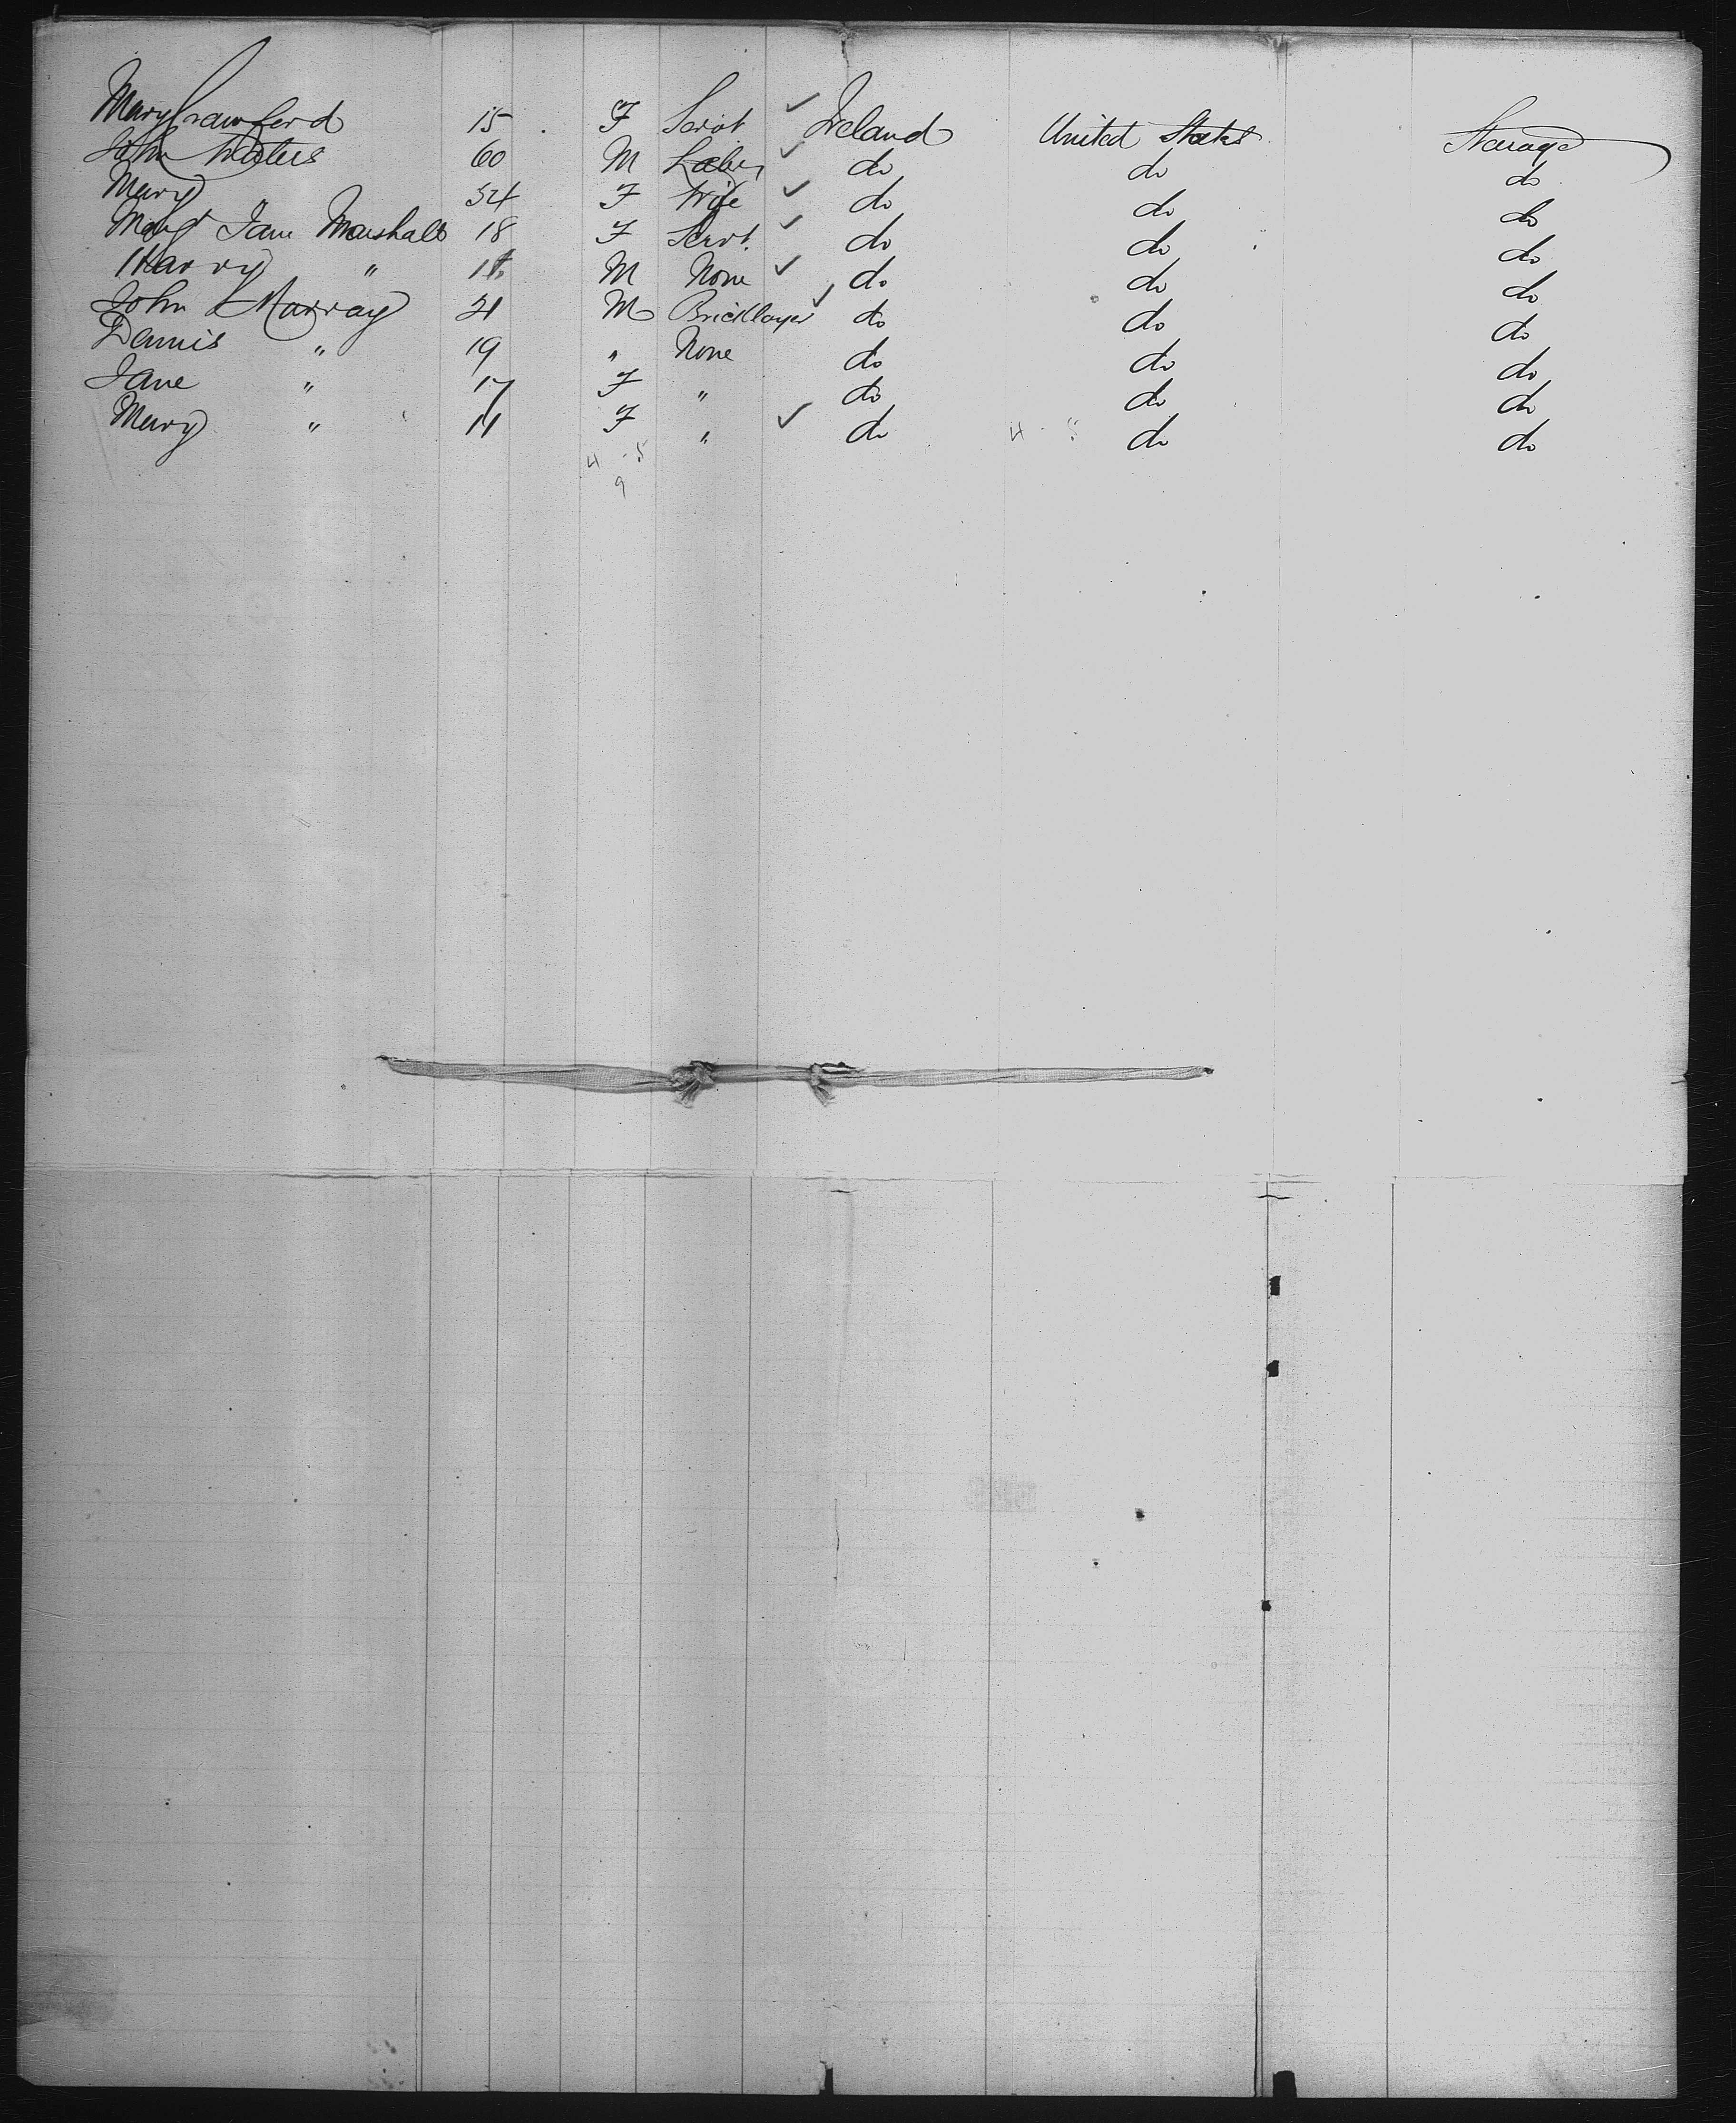 Mary Crawford 15 F Servt ✓ Ireland United States Steerage
John Waters 60 M Laber ✓ do do do
Mary 54 F Wife ✓ do do do
Margt Jane Marshall 18 F Servt. ✓ do do do
Harry " M None ✓ do do do
John Murray 21 M Bricklayer ✓ do do do
Dennis " 19 " None do do do
Jane " 17 F " do do do
Mary " 11 F " ✓ do 4 - 5 do do
4 - 5
9